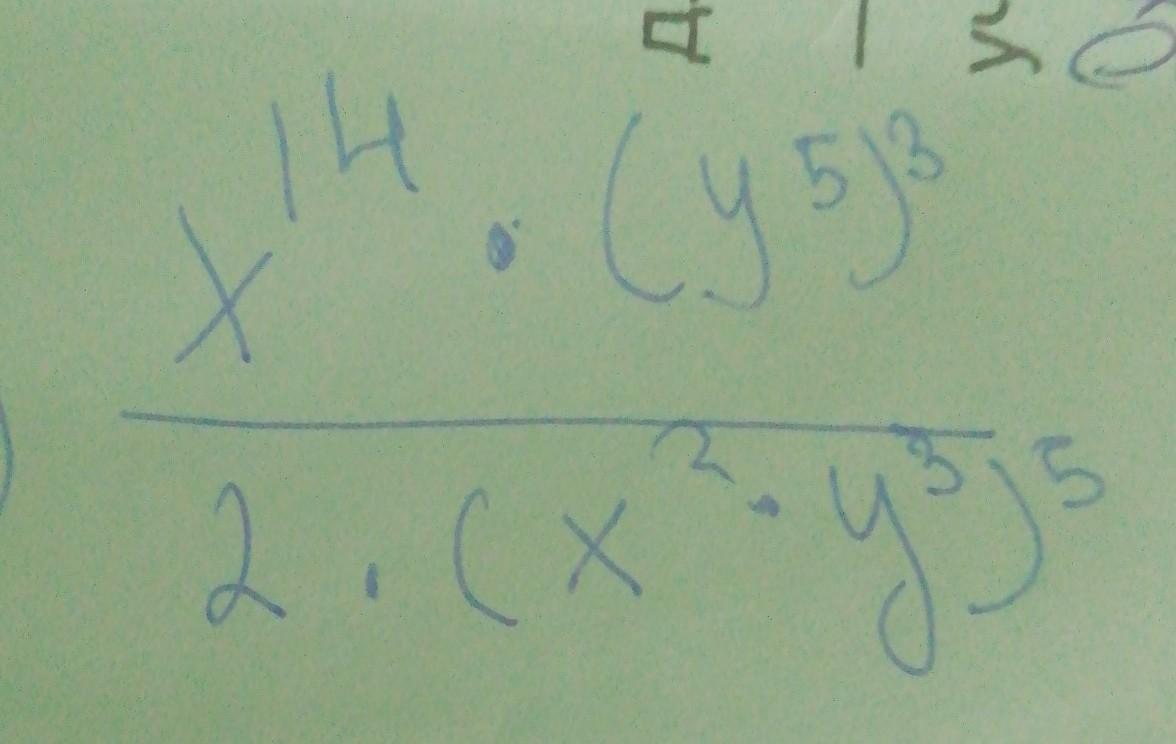 x¹⁴ · (y⁵)³
2 · (x² · y³)⁵